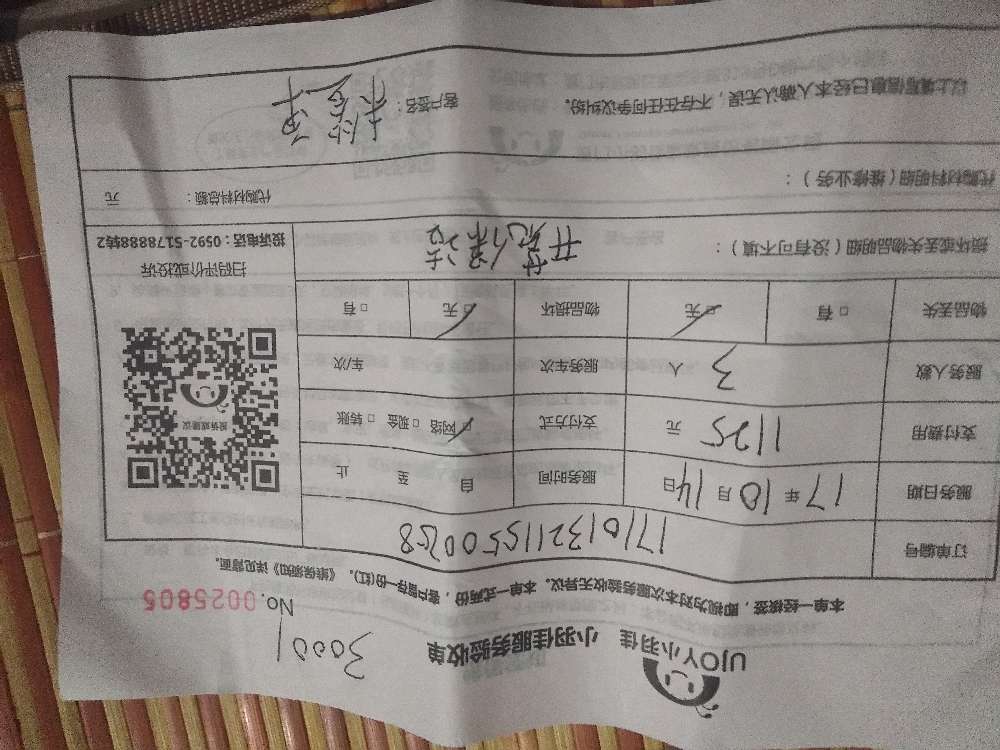 UJOY小羽佳 小羽佳服务验收单
30001
No. 0025805
本单一经接签，即视为对本次服务验收无异议。本单一式两份，客户留存一份(红)。《维保须知》详见背面。
订单编号 1710132115500258
服务日期 17年10月14日 服务时间 自 至 止
支付费用 1125 元 支付方式 □网络 □现金 □转账
服务人数 3 人 服务车次 车/次
物品丢失 □有 □无 物品损坏 □无 □有
投诉或建议
扫码评价或投诉
投诉电话：0592-5178888转2
损坏或丢失物品明细（没有可不填）：开荒保洁
代购材料明细（维修业务）：
代购材料总额： 元
以上填写信息已经本人确认无误，不存在任何争议纠纷。 客户签名：